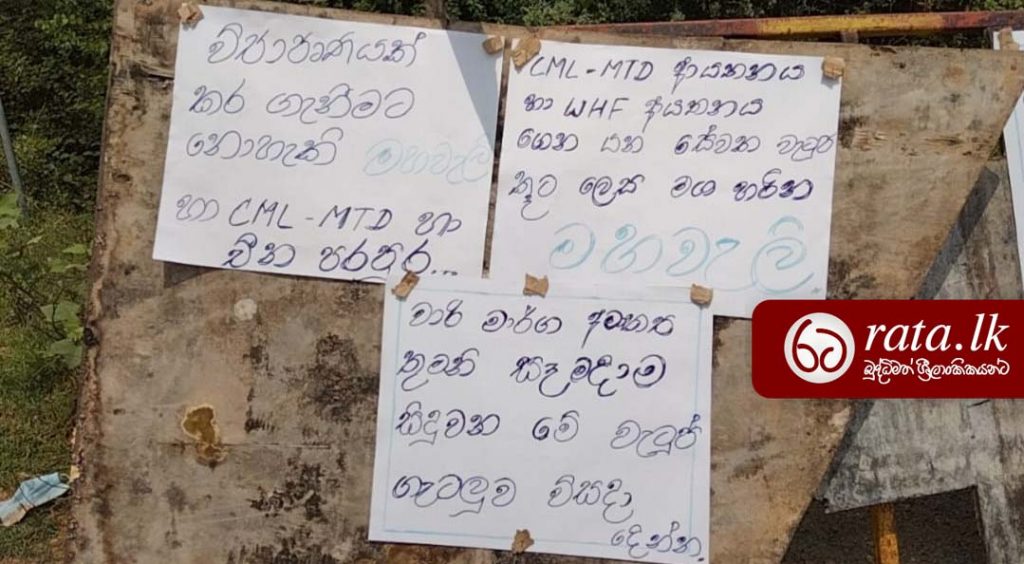 ව්‍යාපෘතියක්
කර ගැනීමට
නොහැකි මහවැලි
හා CML-MTD හා
චීන පරපුර...
CML-MTD ආයතනය
හා WHF අයතනය
ගෙන යන සේවක වැටුප්
කූට ලෙස මග හරින
මහවැලි
වාරි මාර්ග අමාත්‍ය
තුමනි සෑමදාම
සිදුවන මේ වැටුප්
ගැටලුව විසදා
දෙන්න.
රට rata.lk
බුද්ධිමත් ශ්‍රී ලාංකිකයන්ට